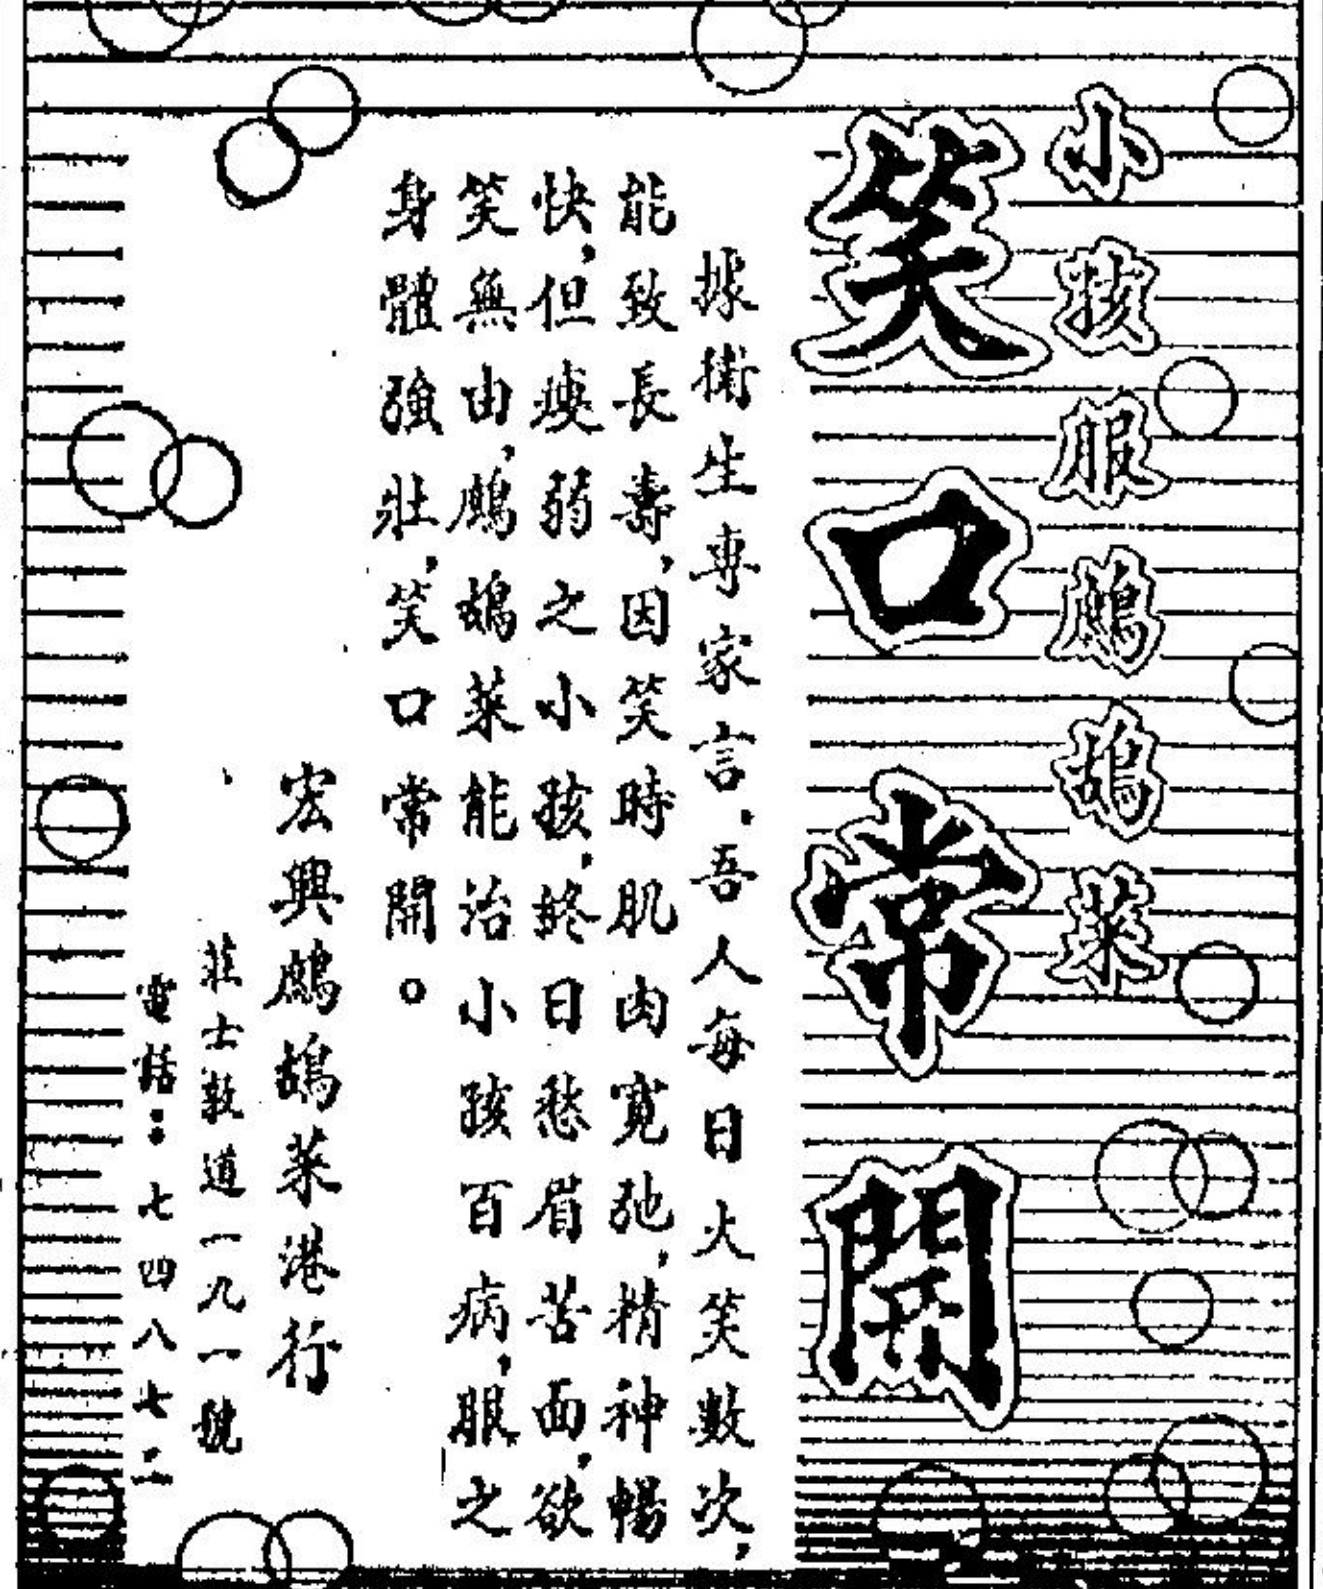 小孩服鷓鴣菜
笑口常開
據衛生專家言，吾人每日大笑數次，
能致長壽，因笑時肌肉寬弛，精神暢
快，但瘦弱之小孩，終日愁眉苦面，欲
笑無由，鷓鴣菜能治小孩百病，服之
身體強壯，笑口常開。
宏興鷓鴣菜港行
莊士敦道一九一號
電話：七四八七二